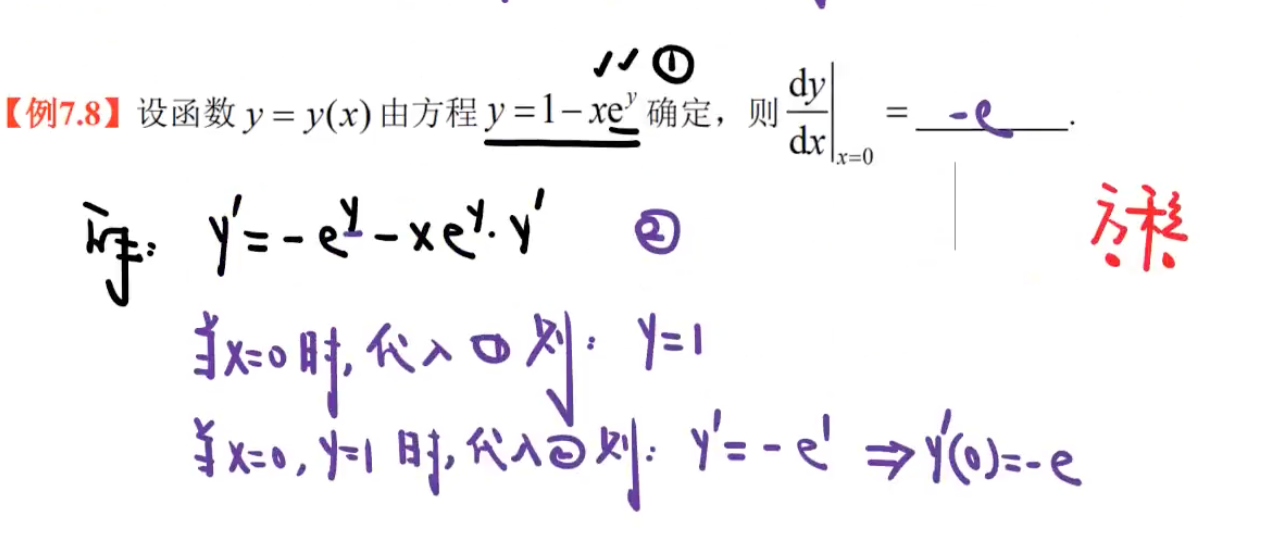 ①
【例7.8】设函数 y = y(x) 由方程 y = 1 − xe^y 确定，则 dy/dx|x=0 = -e .
y' = -e^y - xe^y · y' ②
方程
当x=0时, 代入①则: y=1
当x=0, y=1时, 代入②则: y'=-e^1 ⇒ y'(0)=-e